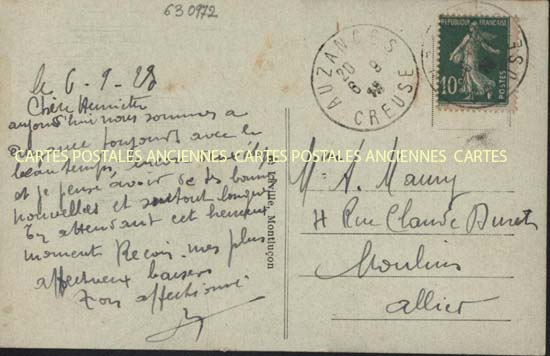 630972
le 6-9-28
Chère Henriette
aujourd'hui nous sommes a
toujours avec le
beau temps,
et je pense avoir de tes bonnes
nouvelles et surtout longues
En attendant cet heureux
moment Reçois mes plus
affectueux baisers
Ton affectionné
CARTES POSTALES ANCIENNES CARTES POSTALES ANCIENNES CARTES
Montluçon
AUZANCES
20
8 9
28
CREUSE
REPUBLIQUE FRANÇAISE
10c
POSTES
USE
Me A. Maury
4 Rue Claude Duret
Moulins
Allier